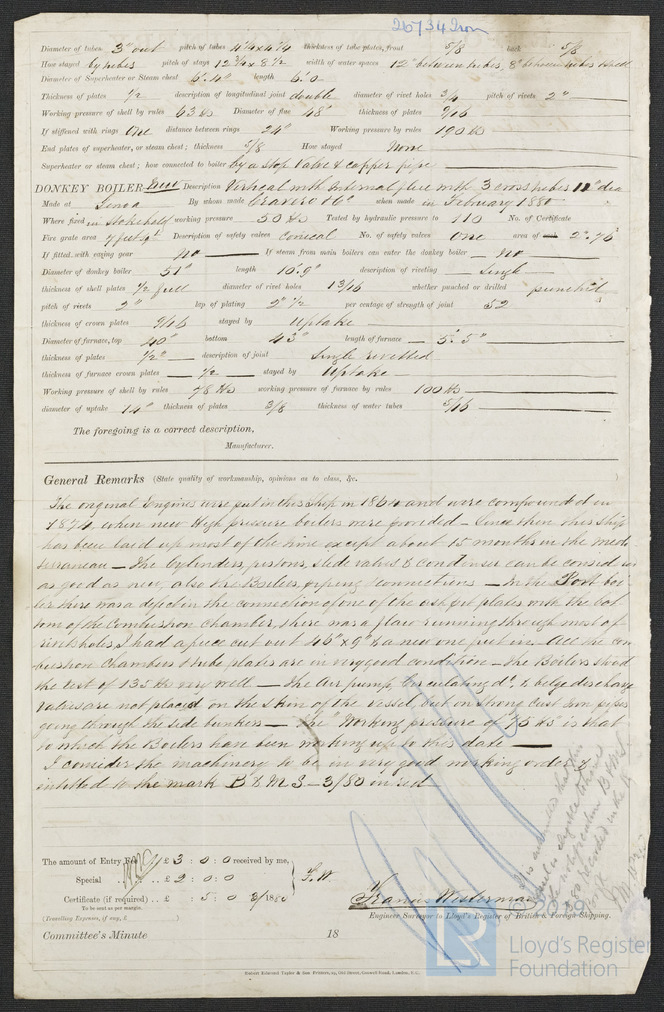 26734 Iron
Diameter of tubes 3" out pitch of tubes 4 1/4 x 4 1/4 thickness of tube plates, front 5/8 back 5/8
How stayed by tubes pitch of stays 12 3/4 x 8 1/2 width of water spaces 12" between tubes, 8" between tubes &
Diameter of Superheater or Steam chest 6'.4" length 6'.0
Thickness of plates 1/2 description of longitudinal joint double diameter of rivet holes 3/4 pitch of rivets 2"
Working pressure of shell by rules 63 lbs Diameter of flue 48" thickness of plates 9/16
If stiffened with rings One distance between rings 24" Working pressure by rules 190 lbs
End plates of superheater, or steam chest; thickness 5/8 How stayed None
Superheater or steam chest; how connected to boiler by a stop valve & copper pipe
DONKEY BOILER New Description Vertical with internal flue with 3 cross tubes 11" dia
Made at Genoa By whom made Cravero & Co when made in February 1880
Where fixed in Stokehold working pressure 50 lbs Tested by hydraulic pressure to 110 No. of Certificate
Fire grate area 9 feet sqr Description of safety valves Conical No. of safety valves One area of 2".76
If fitted with easing gear No If steam from main boilers can enter the donkey boiler No
Diameter of donkey boiler 51" length 10'.9" description of riveting Single
thickness of shell plates 1/2 full diameter of rivet holes 13/16 whether punched or drilled punched
pitch of rivets 2" lap of plating 2" 1/2 per centage of strength of joint 52
thickness of crown plates 9/16 stayed by Uptake
Diameter of furnace, top 40" bottom 43" length of furnace 5'.5"
thickness of plates 1/2" description of joint Single rivetted
thickness of furnace crown plates 1/2 stayed by Uptake
Working pressure of shell by rules 78 lbs working pressure of furnace by rules 100 lbs
diameter of uptake 14" thickness of plates 3/8 thickness of water tubes 5/16
The foregoing is a correct description,
Manufacturer.
General Remarks (State quality of workmanship, opinions as to class, &c.
The original Engines were put in this ship in 1864 and were compounded in
1874 when new High pressure boilers were provided - Since then this ship
has been laid up most of the time except about 15 months in the Medi
terranean - The Cylinders, pistons, slide valves & Condenser can be considered
as good as new, also the Boilers, piping & connections - In the Port boi
ler there was a defect in the connection of one of the ash pit plates with the bot
tom of the Combustion Chamber, there was a flaw running through most of
rivet holes, I had a piece cut out 46" x 9" & a new one put in. All the com
bustion Chambers & tube plates are in very good condition - The Boilers stood
the test of 135 lbs very well - The Air pump, Circulating do. & bilge discharge
valves are not placed on the skin of the vessel but on strong Cast Iron pipes
going through the side bunkers - The Working pressure of 75 lbs is that
to which the Boilers have been working up to this date
I consider the machinery to be in very good working order &
entitled to the mark B & M S - 3/80 in red
It is submitted that this
vessel is eligible to have
the notification B & MS
3.80 recorded in the
The amount of Entry Fee .. £ 3 : 0 : 0 received by me,
Special .. £ 2 : 0 : 0 F.W.
Certificate (if required) .. £ : 5 : 0 3/1880
To be sent as per margin.
(Travelling Expenses, if any, £ )
Francis Westerman
Engineer Surveyor to Lloyd's Register of British & Foreign Shipping.
Committee's Minute 18
Robert Edmund Taylor & Son Printers, 19, Old Street, Goswell Road, London, E.C.
LR
Lloyd's Register
Foundation